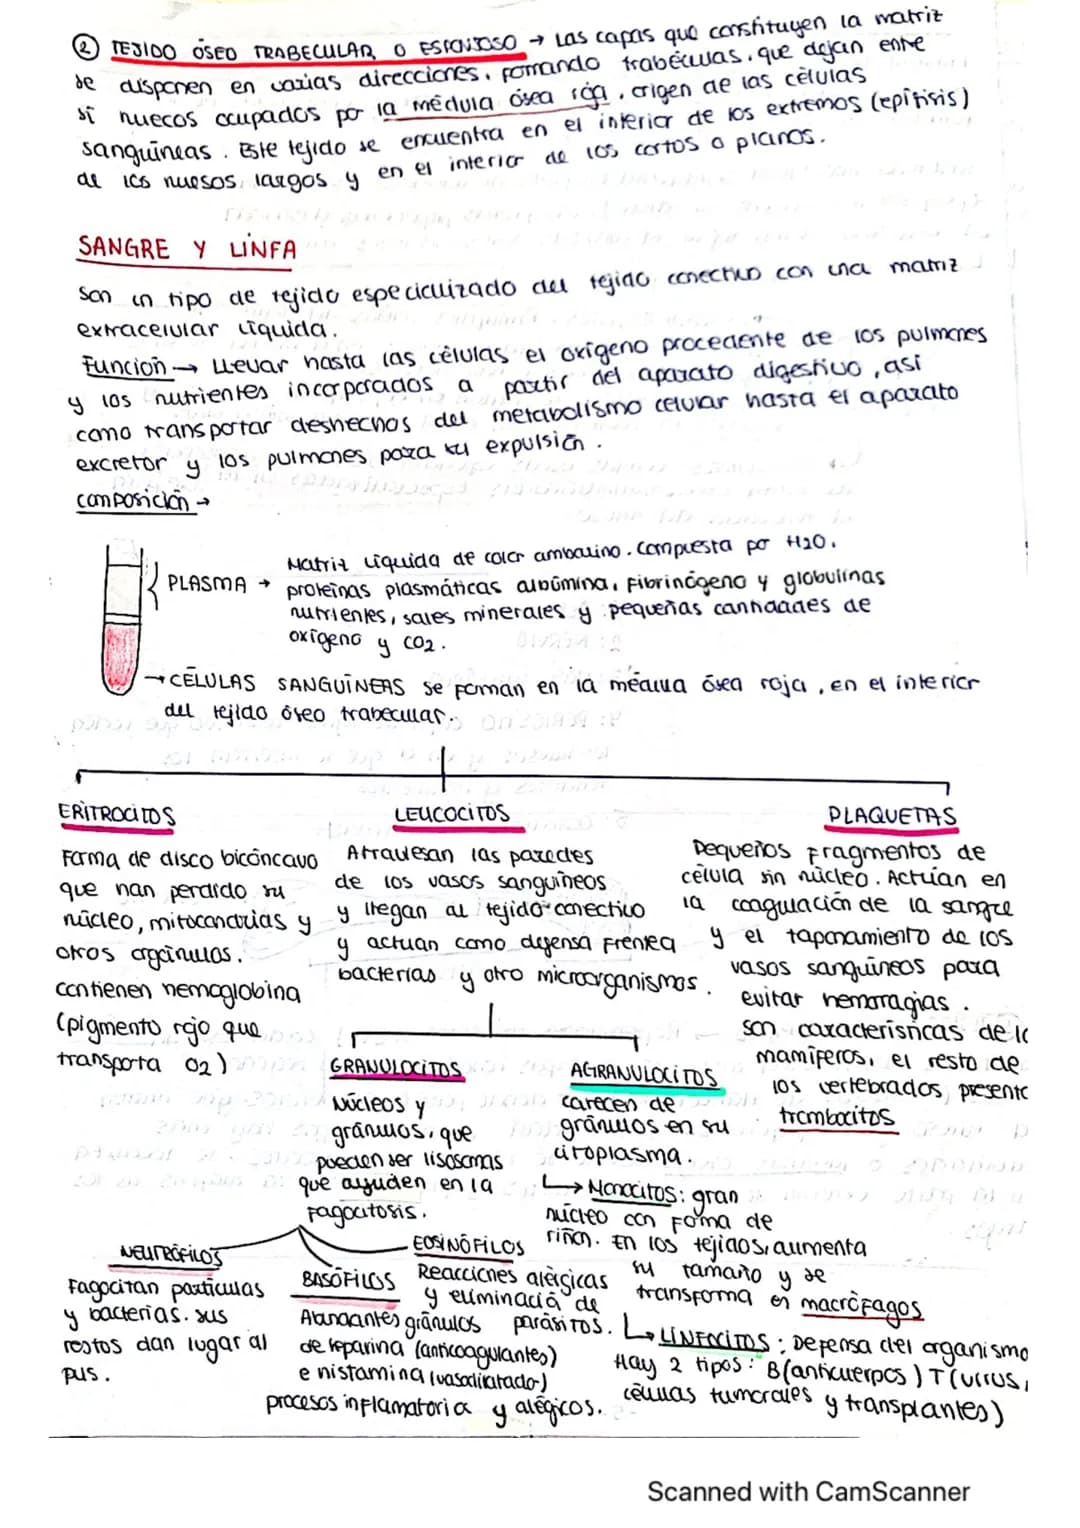 ② TEJIDO ÓSEO TRABECULAR O ESPONJOSO → Las capas que constituyen la matriz
se disponen en varias direcciones, formando trabéculas, que dejan entre
sí huecos ocupados por la médula ósea roja, origen de las células
sanguíneas. Este tejido se encuentra en el interior de los extremos (epífisis)
de los huesos largos y en el interior de los cortos o planos.
SANGRE Y LINFA
Son un tipo de tejido especializado del tejido conectivo con una matriz
extracelular líquida.
Función → Llevar hasta las células el oxígeno procedente de los pulmones
y los nutrientes incorporados a partir del aparato digestivo, así
como transportar deshechos del metabolismo celular hasta el aparato
excretor y los pulmones para su expulsión.
Composición →
PLASMA → Matriz líquida de color ambarino. Compuesta por H2O,
proteínas plasmáticas albúmina, fibrinógeno y globulinas
nutrientes, sales minerales y pequeñas cantidades de
oxígeno y CO2.
→ CÉLULAS SANGUÍNEAS se forman en la médula ósea roja, en el interior
del tejido óseo trabecular.
ERITROCITOS
Forma de disco bicóncavo
que han perdido su
núcleo, mitocondrias y
otros orgánulos.
Contienen hemoglobina
(pigmento rojo que
transporta O2)
LEUCOCITOS
Atraviesan las paredes
de los vasos sanguíneos
y llegan al tejido conectivo
y actuan como defensa frente a
bacterias y otro microorganismos.
PLAQUETAS
Pequeños fragmentos de
célula sin núcleo. Actúan en
la coagulación de la sangre
y el taponamiento de los
vasos sanguíneos para
evitar hemoragias.
Son características de lo
mamíferos, el resto de
los vertebrados, presento
trombocitos
GRANULOCITOS
Núcleos y
gránulos, que
pueden ser lisosomas
que ayuden en la
fagocitosis.
AGRANULOCITOS
carecen de
gránulos en su
citoplasma.
↳ Monocitos: gran
núcleo con forma de
riñón. En los tejidos, aumenta
su tamaño y se
transforma en macrófagos
↳ LINFOCITOS: Defensa del organismo
Hay 2 tipos: B (anticuerpos) T (virus,
células tumorales y transplantes)
NEUTRÓFILOS
Fagocitan partículas
y bacterias. Sus
restos dan lugar al
pus.
BASÓFILOS
Abundantes gránulos
de heparina (anticoagulantes)
e histamina (vasodilatador)
procesos inflamatoria y alégicos.
EOSINÓFILOS
Reacciones alérgicas
y eliminación de
parásitos.
Scanned with CamScanner